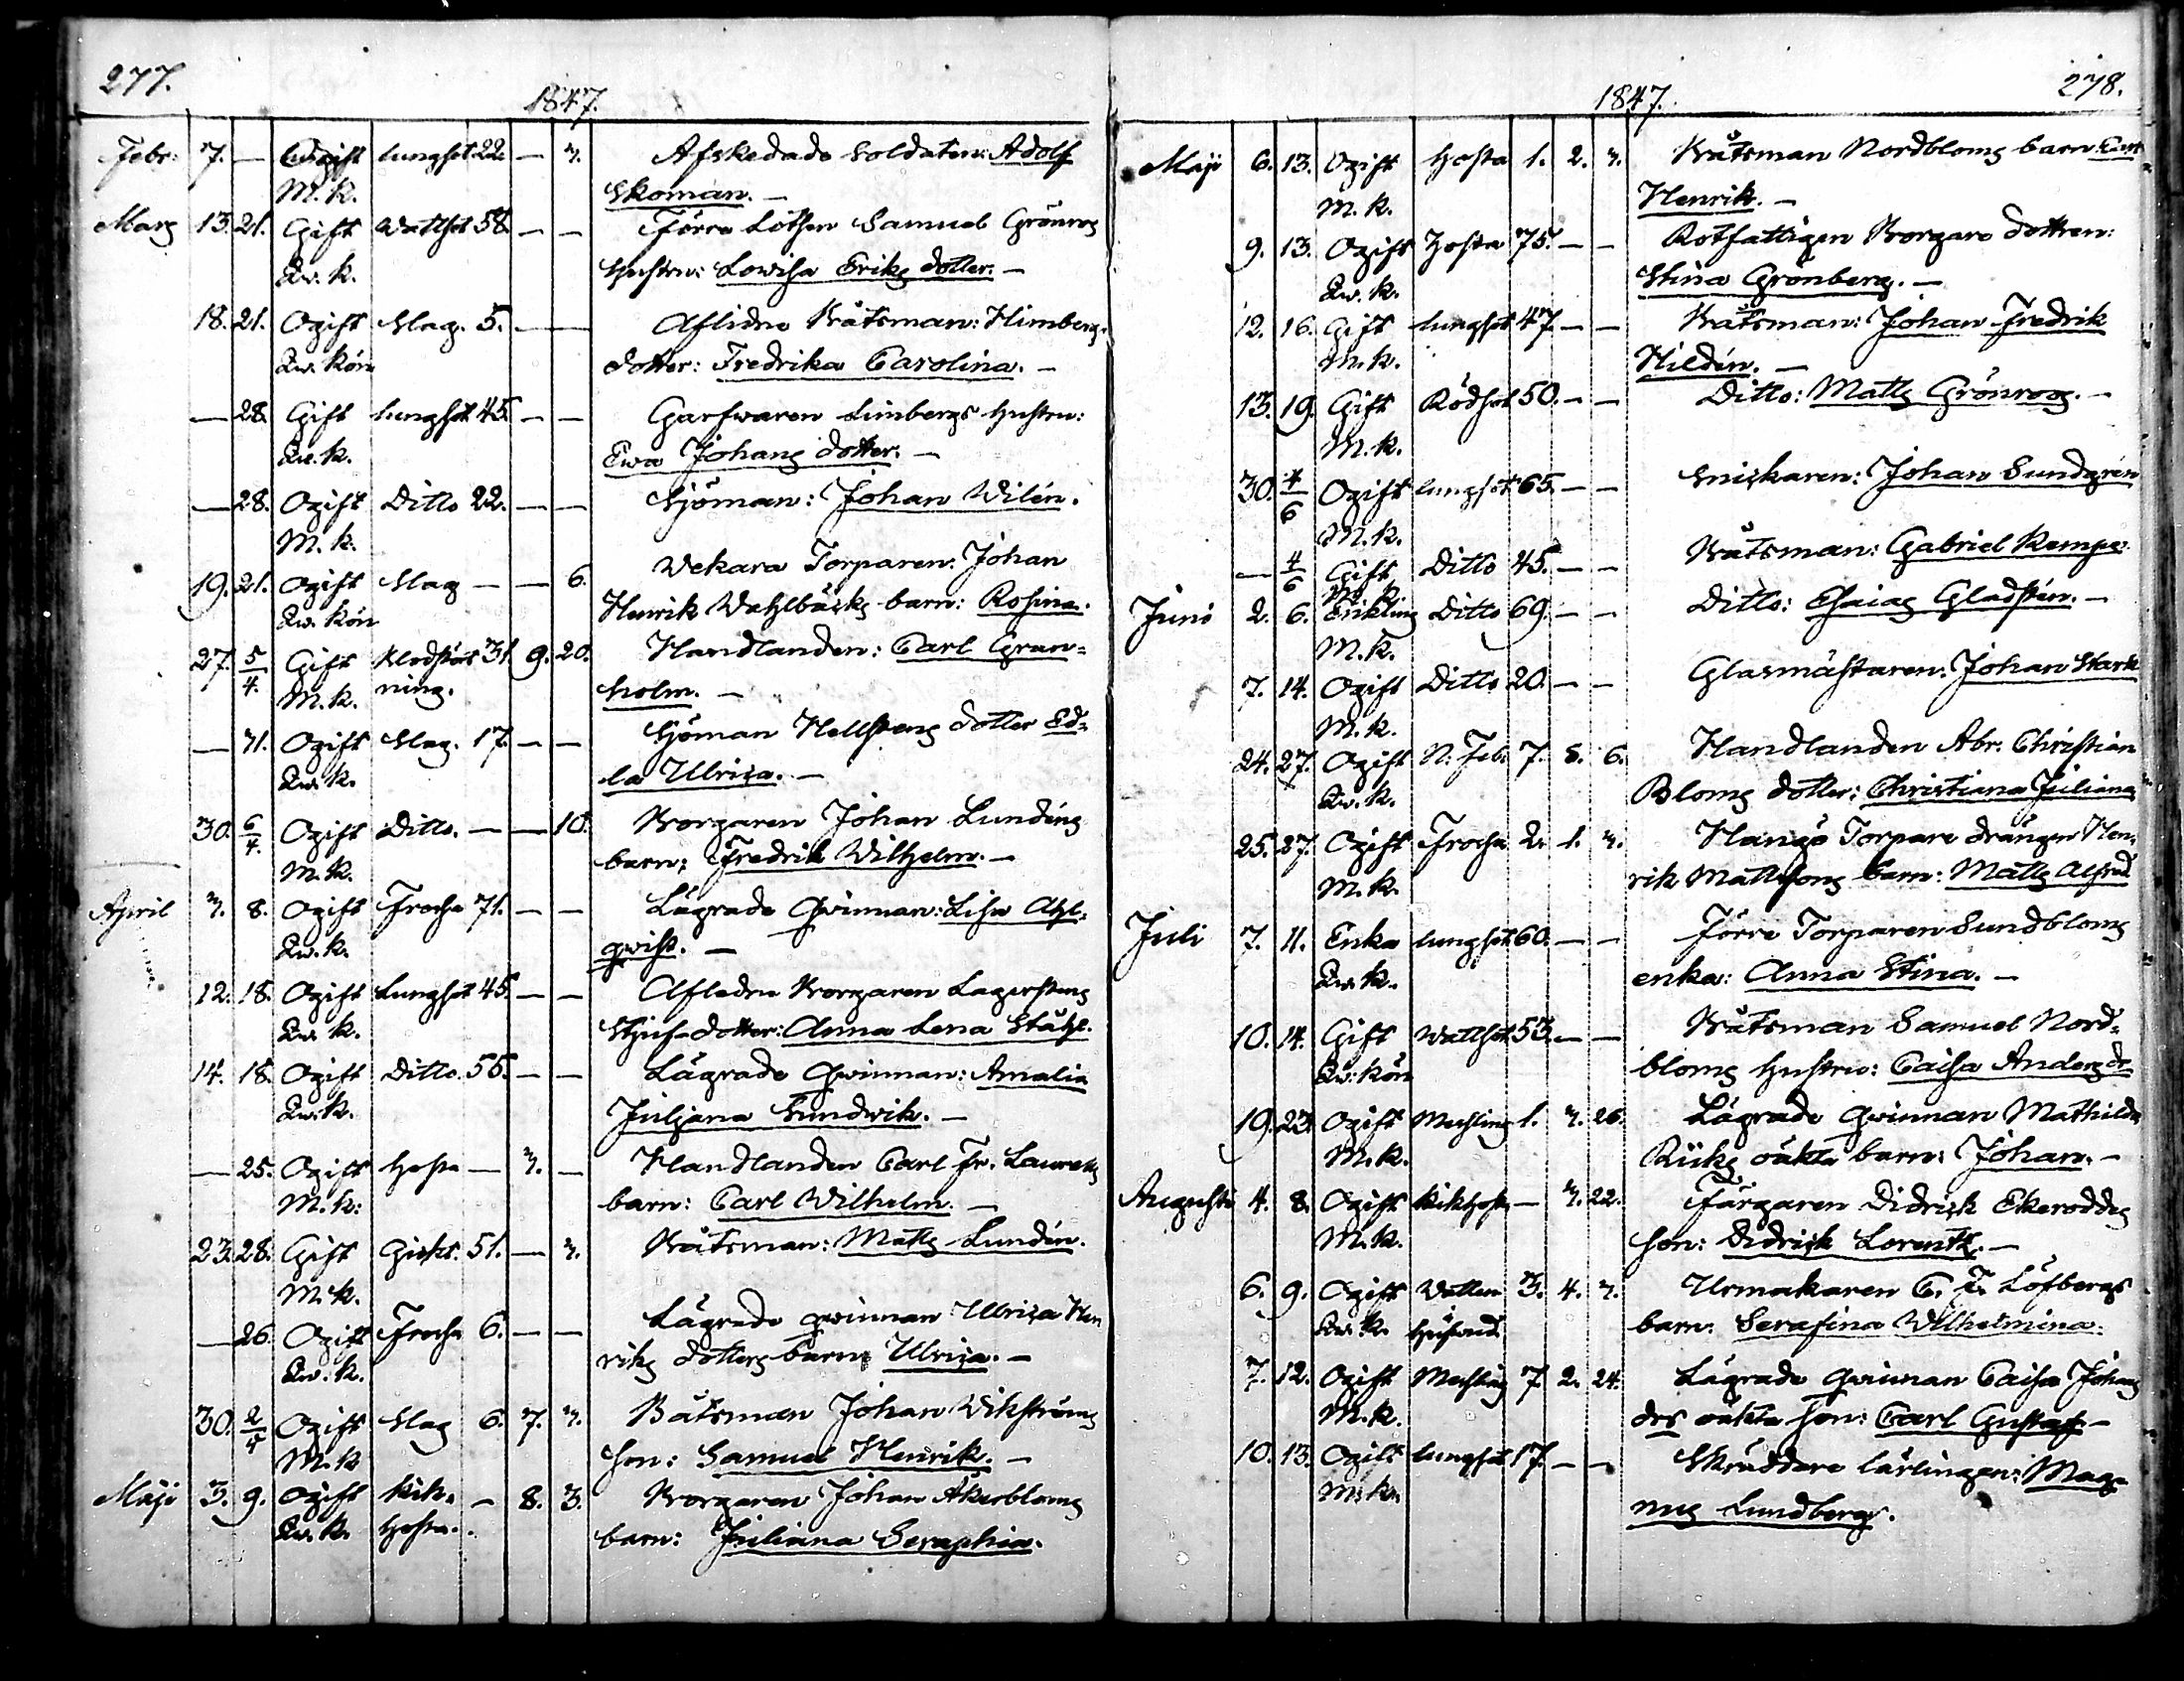 277.
1847.
Febr. 7. — Ogift lungsot 22. — 7. Afskedade Soldaten: Adolf
M. k. Skoman. —
Mars 13. 21. Gift Wattsot 58. — — Förre Lotsen Samuel Grönroos
Qw. k. Hustru: Lowisa Eriks dotter. —
18. 21. Ogift Slag. 5. — — Aflidne Båtsman: Himbergs
Qw. kön dotter: Fredrika Carolina. —
— 28. Gift lungsot 45. — — Garfwaren Limbergs Hustru:
Qw. k. Ewa Johans dotter. —
— 28. Ogift Ditto 22. — — Sjöman: Johan Wilén.
M. k.
19. 21. Ogift Slag — — 6. Wekara Torparen: Johan
Qw. kön Henrik Wahlbäcks barn: Rosina.
27. 5/4. Gift Blodstört 31. 9. 20. Handlanden: Carl Gran-
M. k. ning. holm. —
— 31. Ogift Slag. 17. — — Sjöman Hellstens dotter Ed-
Qw. k. la Ulrica. —
30. 6/4. Ogift Ditto. — — 10. Borgaren Johan Lundéns
M. k. barn: Fredrik Wilhelm. —
April 3. 8. Ogift Frossa 71. — — Lägrade Qwinnan: Lisa Ahl-
Qw. k. qwist. —
12. 18. Ogift Lungsot 45. — — Afledne Borgaren Lagerstens
Qw. k. Stjuf-dotter: Anna Lena Ståhl.
14. 18. Ogift Ditto. 55. — — Lägrade Qwinnan: Amalia
Qw. k. Juljana Sundwik. —
— 25. Ogift Hosta — 3. — Handlanden Carl Fr. Laurells
M. k. barn: Carl Wilhelm. —
23. 28. Gift Gickt. 51. — 3. Båtsman: Matts Lundén.
M. k.
— 26. Ogift Frossa 6. — — Lägrade qwinnan Ulrica Hen
Qw. k. riks dotters barn: Ulrica. —
30. 2/5 Ogift Slag 6. 7. 3. Båtsman Johan Wikströms
M. k. son: Samuel Henrik. —
Maji 3. 9. Ogift Kik- — 8. 3. Borgaren Johan Åkerbloms
Qw. k. hosta. barn: Juliana Seraphia.
278.
1847.
Maji 6. 13. Ogift Hosta 1. 2. 7. Båtsman Nordbloms barn
M. k. Henrik. —
9. 13. Ogift Hosta 75. — — Rotfattigen Borgare dottren:
Qw. k. Stina Grönberg. —
12. 16. Gift lungsot 47. — — Båtsman: Johan Fredrik
M. k. Hildén. —
13. 19. Gift Rödsot 50. — — Ditto: Matts Grönroos. —
M. k.
30. 4/6 Ogift lungsot 65. — — Snickaren: Johan Sundgrén
M. k.
— 4/6 Gift Ditto 45. — — Båtsman: Gabriel Kempe.
M. k.
Juni 2. 6. Enkling Ditto 69. — — Ditto: Esaias Gladstén. —
M. k.
7. 14. Ogift Ditto 20. — — Glasmästaren: Johan Stark
M. k.
24. 27. Ogift N. Feb. 7. 8. 6. Handlanden Abr. Christian
Qw. k. Bloms dotter: Christiana Juliana
25. 27. Ogift Frossa 2. 1. 3. Hangö Torpare drängen Hen-
M. k. rik Mattssons barn: Matts Alfred
Juli 7. 11. Enka lungsot 60. — — Förre Torparen Sundbloms
Qw. k. enka: Anna Stina. —
10. 14. Gift Wattsot 53. — — Båtsman Samuel Nord-
Qw: kön bloms Hustru: Caisa Anders dr
19. 23. Ogift Messling 1. 3. 26. Lägrade qwinnan Mathilda
M. k. oäkta barn: Johan. —
Augusti 4. 8. Ogift Kikhosta — 3. 22. Färgaren Didrick Ekeroddes
M. k. son: Didrick Lorentz. —
6. 9. Ogift Watten 3. 4. 7. Urmakaren C. F. Löfbergs
Qw. k. hufwud. barn: Serafina Wilhelmina.
7. 12. Ogift Messling 7. 2. 24. Lägrade Qwinnan Caisa Johans
M. k. drs oäkta son: Carl Gustaf —
10. 13. Ogift lungsot 17. — — Skräddare lärlingen: Mag-
M. k. nus Lundberg.